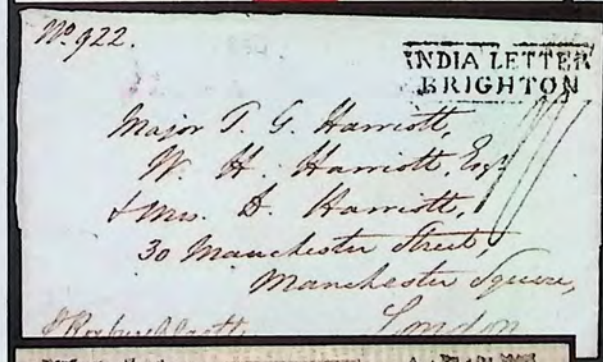 No. 922.
INDIA LETTER
BRIGHTON
Major T. G. Harriott,
W. H. Harriott, Esqr.
& Mrs. D. Harriott,
30 Manchester Street,
Manchester Square,
London